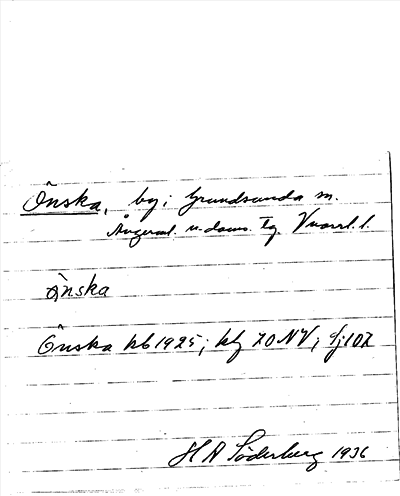 Önska, by i Grundsunda sn.
Ångerml. n. doms. tg Vnorrl. l.
Ònska
Önska kb 1925; kbl 70 NV; Sj 107
H A Söderberg 1936